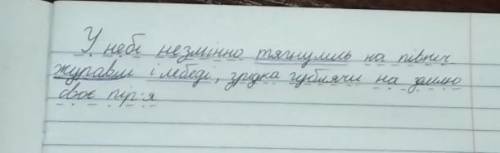 У небі незмінно тягнулись на північ
журавлі і лебеді, зрідка гублячи на землю
своє пір'я